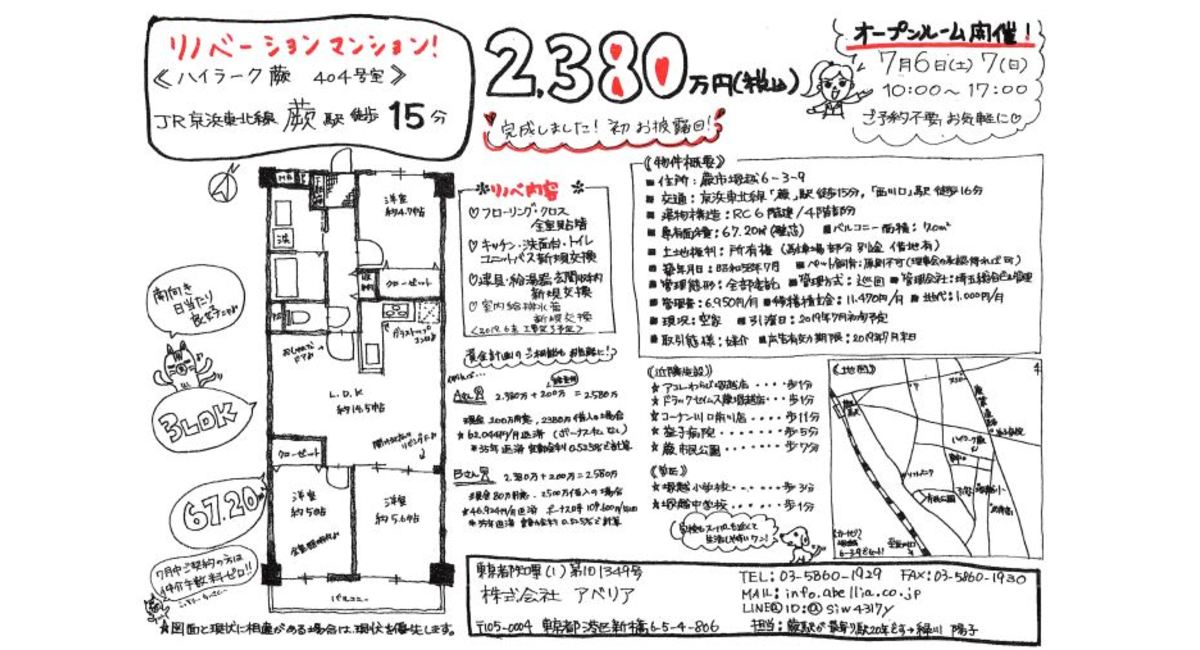 リノベーションマンション!
《ハイラーク蕨 404号室》
JR京浜東北線 蕨駅 徒歩 15分
2,380万円(税込)
完成しました!初お披露目!
オープンルーム開催!
7月6日(土) 7(日)
10:00〜17:00
ご予約不要、お気軽に♡
N
南向き
日当たり
3LDK
67.20
7月中ご契約の方は
仲介手数料ゼロ!!
洋室
約4.7帖
洗
クローゼット
ガラストップ
コンロ
L.D.K
約14.5帖
クローゼット
洋室
約5.0帖
洋室
約5.6帖
バルコニー
★図面と現状に相違がある場合は、現状を優先します。
リノベ内容
♡フローリング・クロス
全室貼替
♡キッチン・洗面台・トイレ
ユニットバス新規交換
♡建具・給湯器・玄関収納
新規交換
♡室内給排水管
新規交換
<2019.6末 工事完了予定>
資金計画のご相談もお気軽に!
Aさん 2.380万+200万=2.580万
諸費用
現金200万用意、2380万借入の場合
★62.044円/月返済 (ボーナス払なし)
★35年返済 変動金利0.525%で計算
Bさん 2.380万+200万=2.580万
現金80万用意、2500万借入の場合
★35年返済 変動金利0.525%で計算
《物件概要》
■住所:蕨市塚越6-3-9
■交通:京浜東北線「蕨」駅徒歩15分,「西川口」駅徒歩16分
■建物構造:RC6階建/4階部分
■専有面積:67.20㎡(壁芯) ■バルコニー面積:7.0㎡
■土地権利:所有権 (駐車場部分 別途 借地有)
■築年月日:昭和58年7月 ■ペット飼育:原則不可(理事会の承認得れば可)
■管理形態:全部委託 ■管理方式:巡回 ■管理会社:埼玉総合ビル管理
■管理費:6.950円/月 ■修繕積立金:11.470円/月 ■地代:1.000円/月
■現況:空家 ■引渡日:2019年7月初旬予定
■取引態様:媒介 ■広告有効期限:2019年7月末日
《近隣施設》
☆アコレわらび塚越店・・・・歩1分
☆ドラッグセイムス蕨塚越店・・歩1分
☆コーナン川口前川店・・・・歩11分
☆益子病院・・・・・・・歩5分
☆蕨市民公園・・・・・・歩7分
《学区》
☆塚越小学校・・・・・歩3分
☆塚越中学校・・・・・歩1分
学校もスーパーも近くて
生活しやすいワン!
《地図》
ハイラーク蕨
東京都知事(1)第101349号
株式会社 アベリア
〒105-0004 東京都港区新橋6-5-4-806
TEL:03-5860-1929 FAX:03-5860-1930
MAIL:info.abellia.co.jp
LINE@ ID:@siw4317y
担当:蕨駅が最寄り駅20年です→緑川 陽子